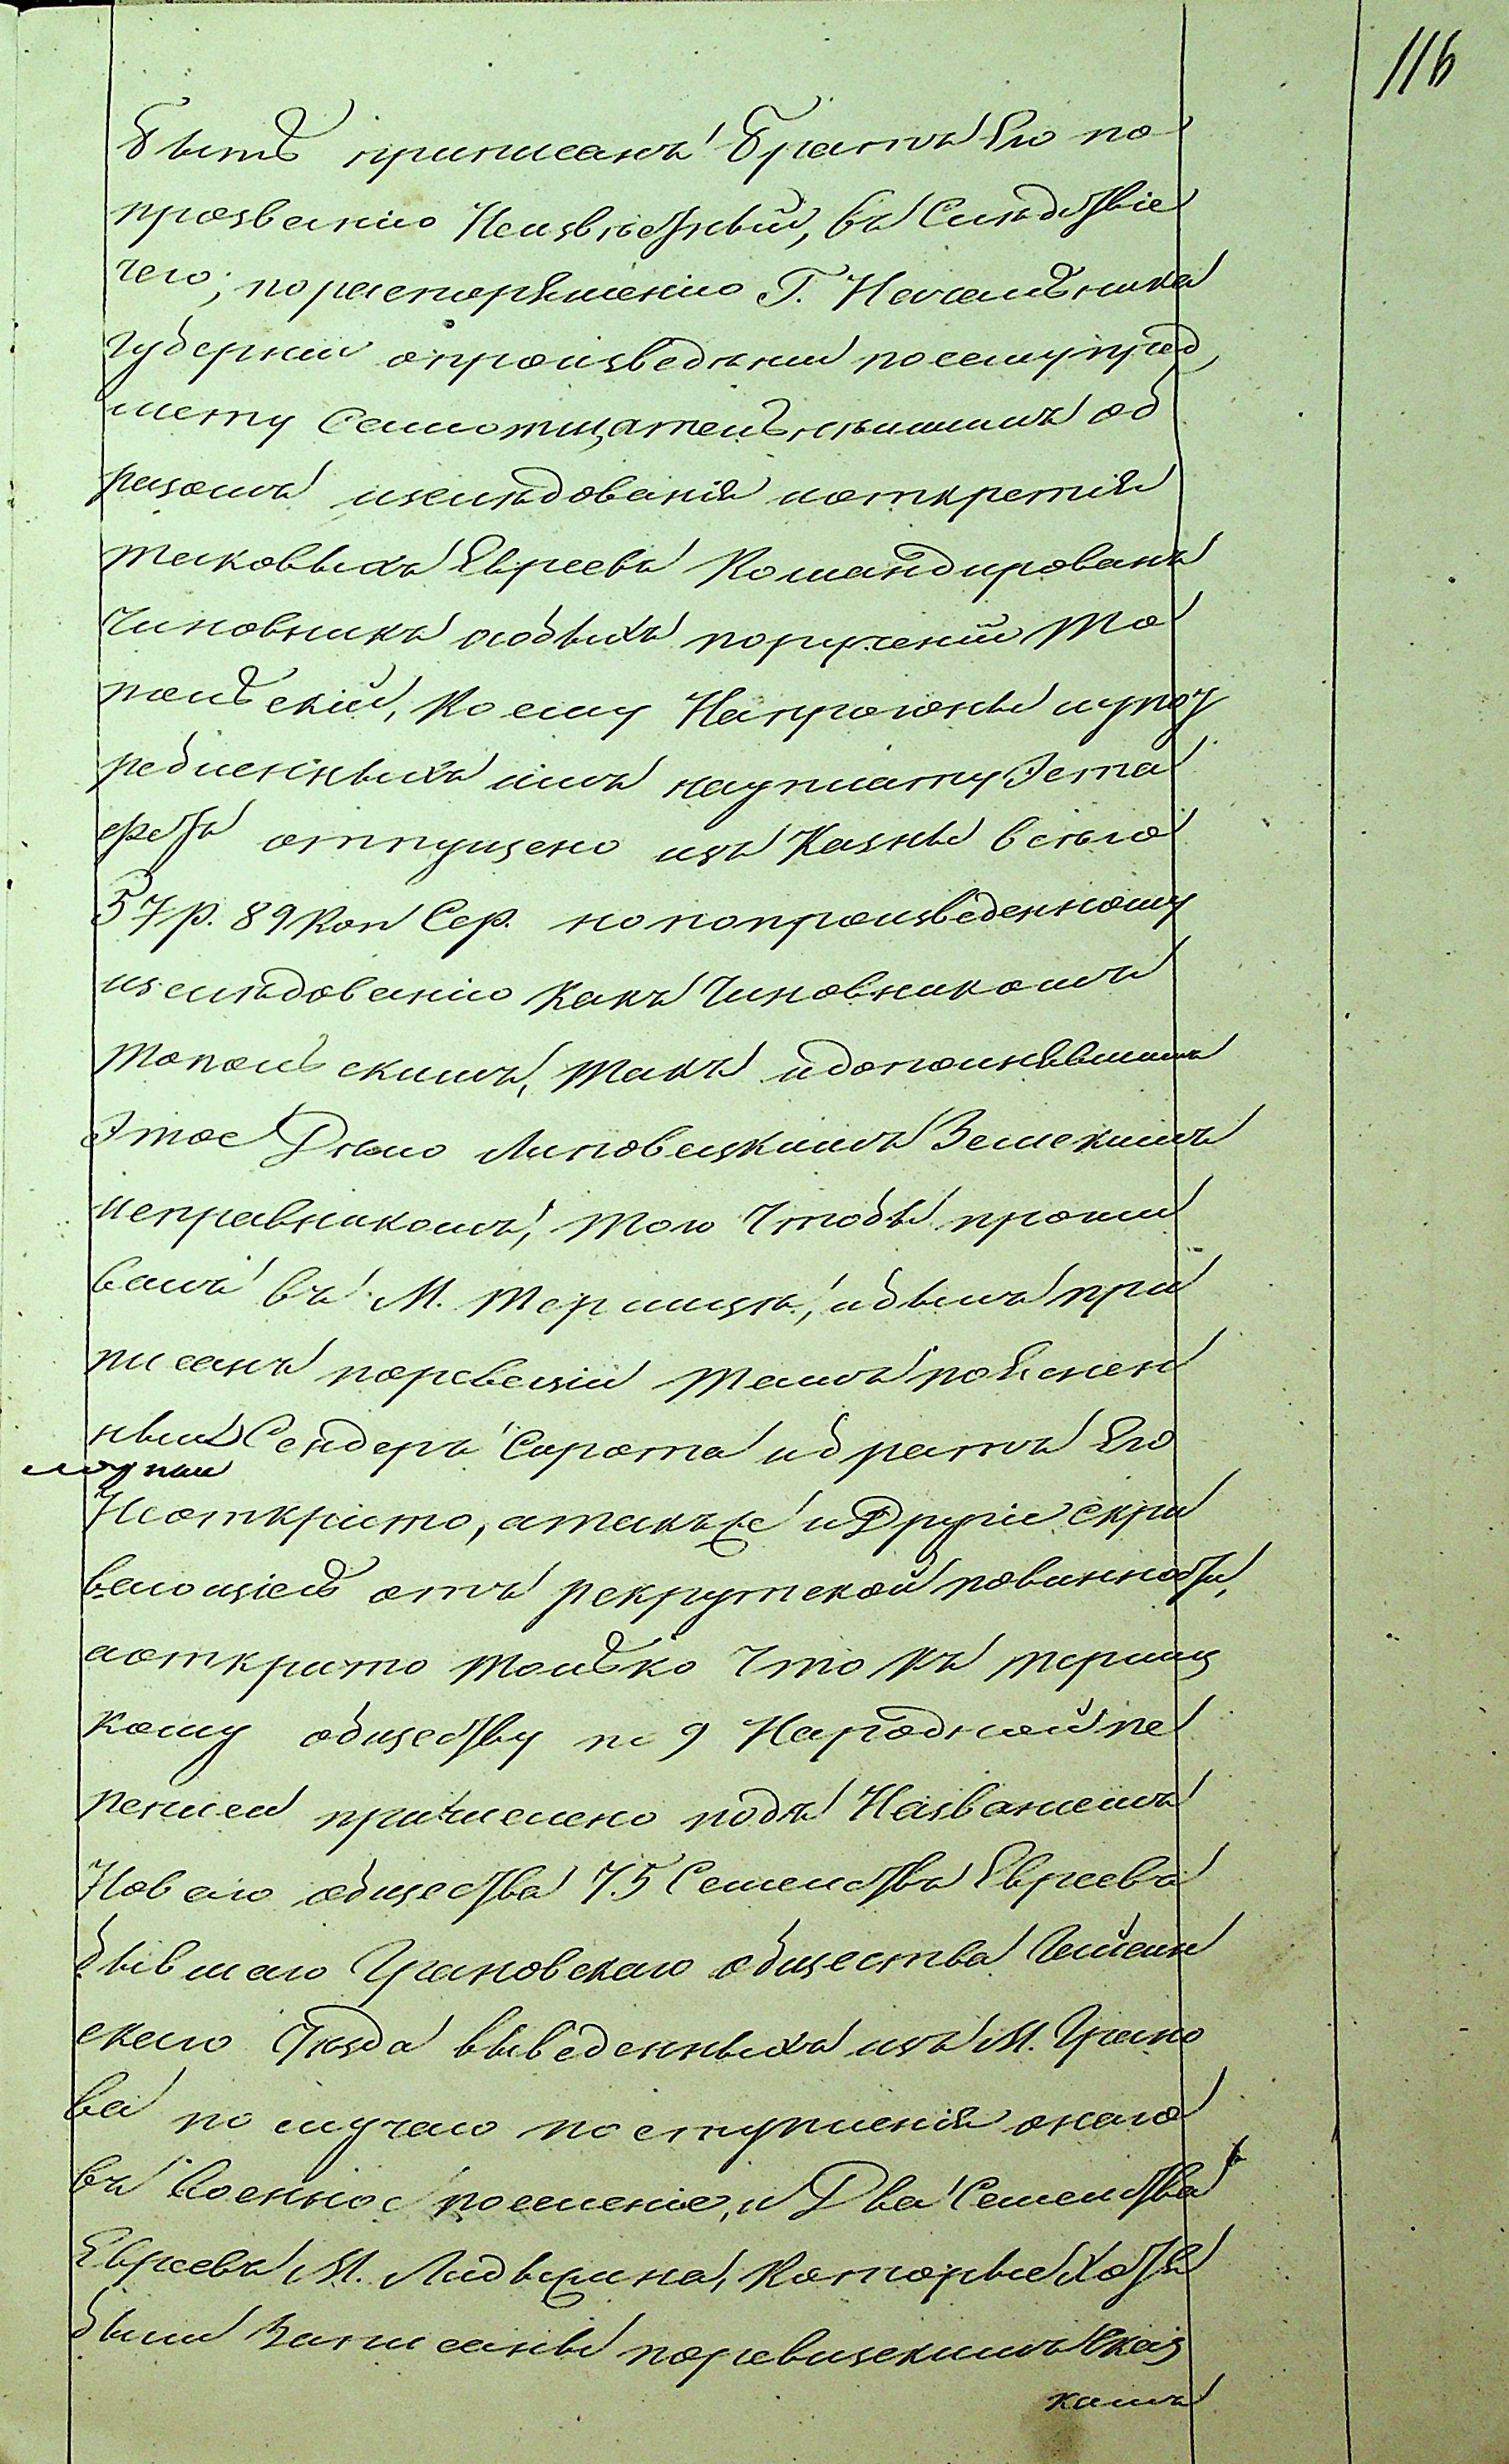 116
быть приписанъ братъ его по
прозванію Неизвѣстный, въ Слѣдствіе
чего; по распоряженію Г. Начальника
губерніи опроизведѣніи посему пред
мету Самотщательнѣишимъ об
разомъ изслѣдованія иоткретія
таковыхъ Евреевъ Командированъ
Чиновникъ особыхъ порученій То
польскій, Коему На прогоны иупот
ребленныхъ имъ науплату Эста
фетъ отпущено изъ Казны всѣго
57 р. 89 Коп Сер. но попроизведенному
изслѣдованію Какъ Чиновникомъ
Топольскимъ, такъ идополнявшимъ
Это Дѣло Липовецкимъ Земскимъ
исправникомъ, того Чтобы прожи
валъ въ М. Терлицѣ, ибылъ при
писанъ поревезіи тамъ поясней
ный Сендеръ Сирота ибратъ Его
Неоткрито, атакъже и Другіе скри
вающіесь отъ рекрутской повинности,
аоткрито только Что Къ терлиц
кому обществу по 9 Народной пе
реписи причислено подъ Названіемъ
Новаго общества 75 Семействъ Евреевъ
бывшаго Грановскаго общества Гайсин
скаго Уѣзда выведенныхъ изъ М. Грано
ва по случаю поступленія онаго
въ Военное поселеніе, и Два Семейства
Евреевъ М. Лидыжина, Которые Хотя
были Записаны поревизскимъ Сказ
камъ